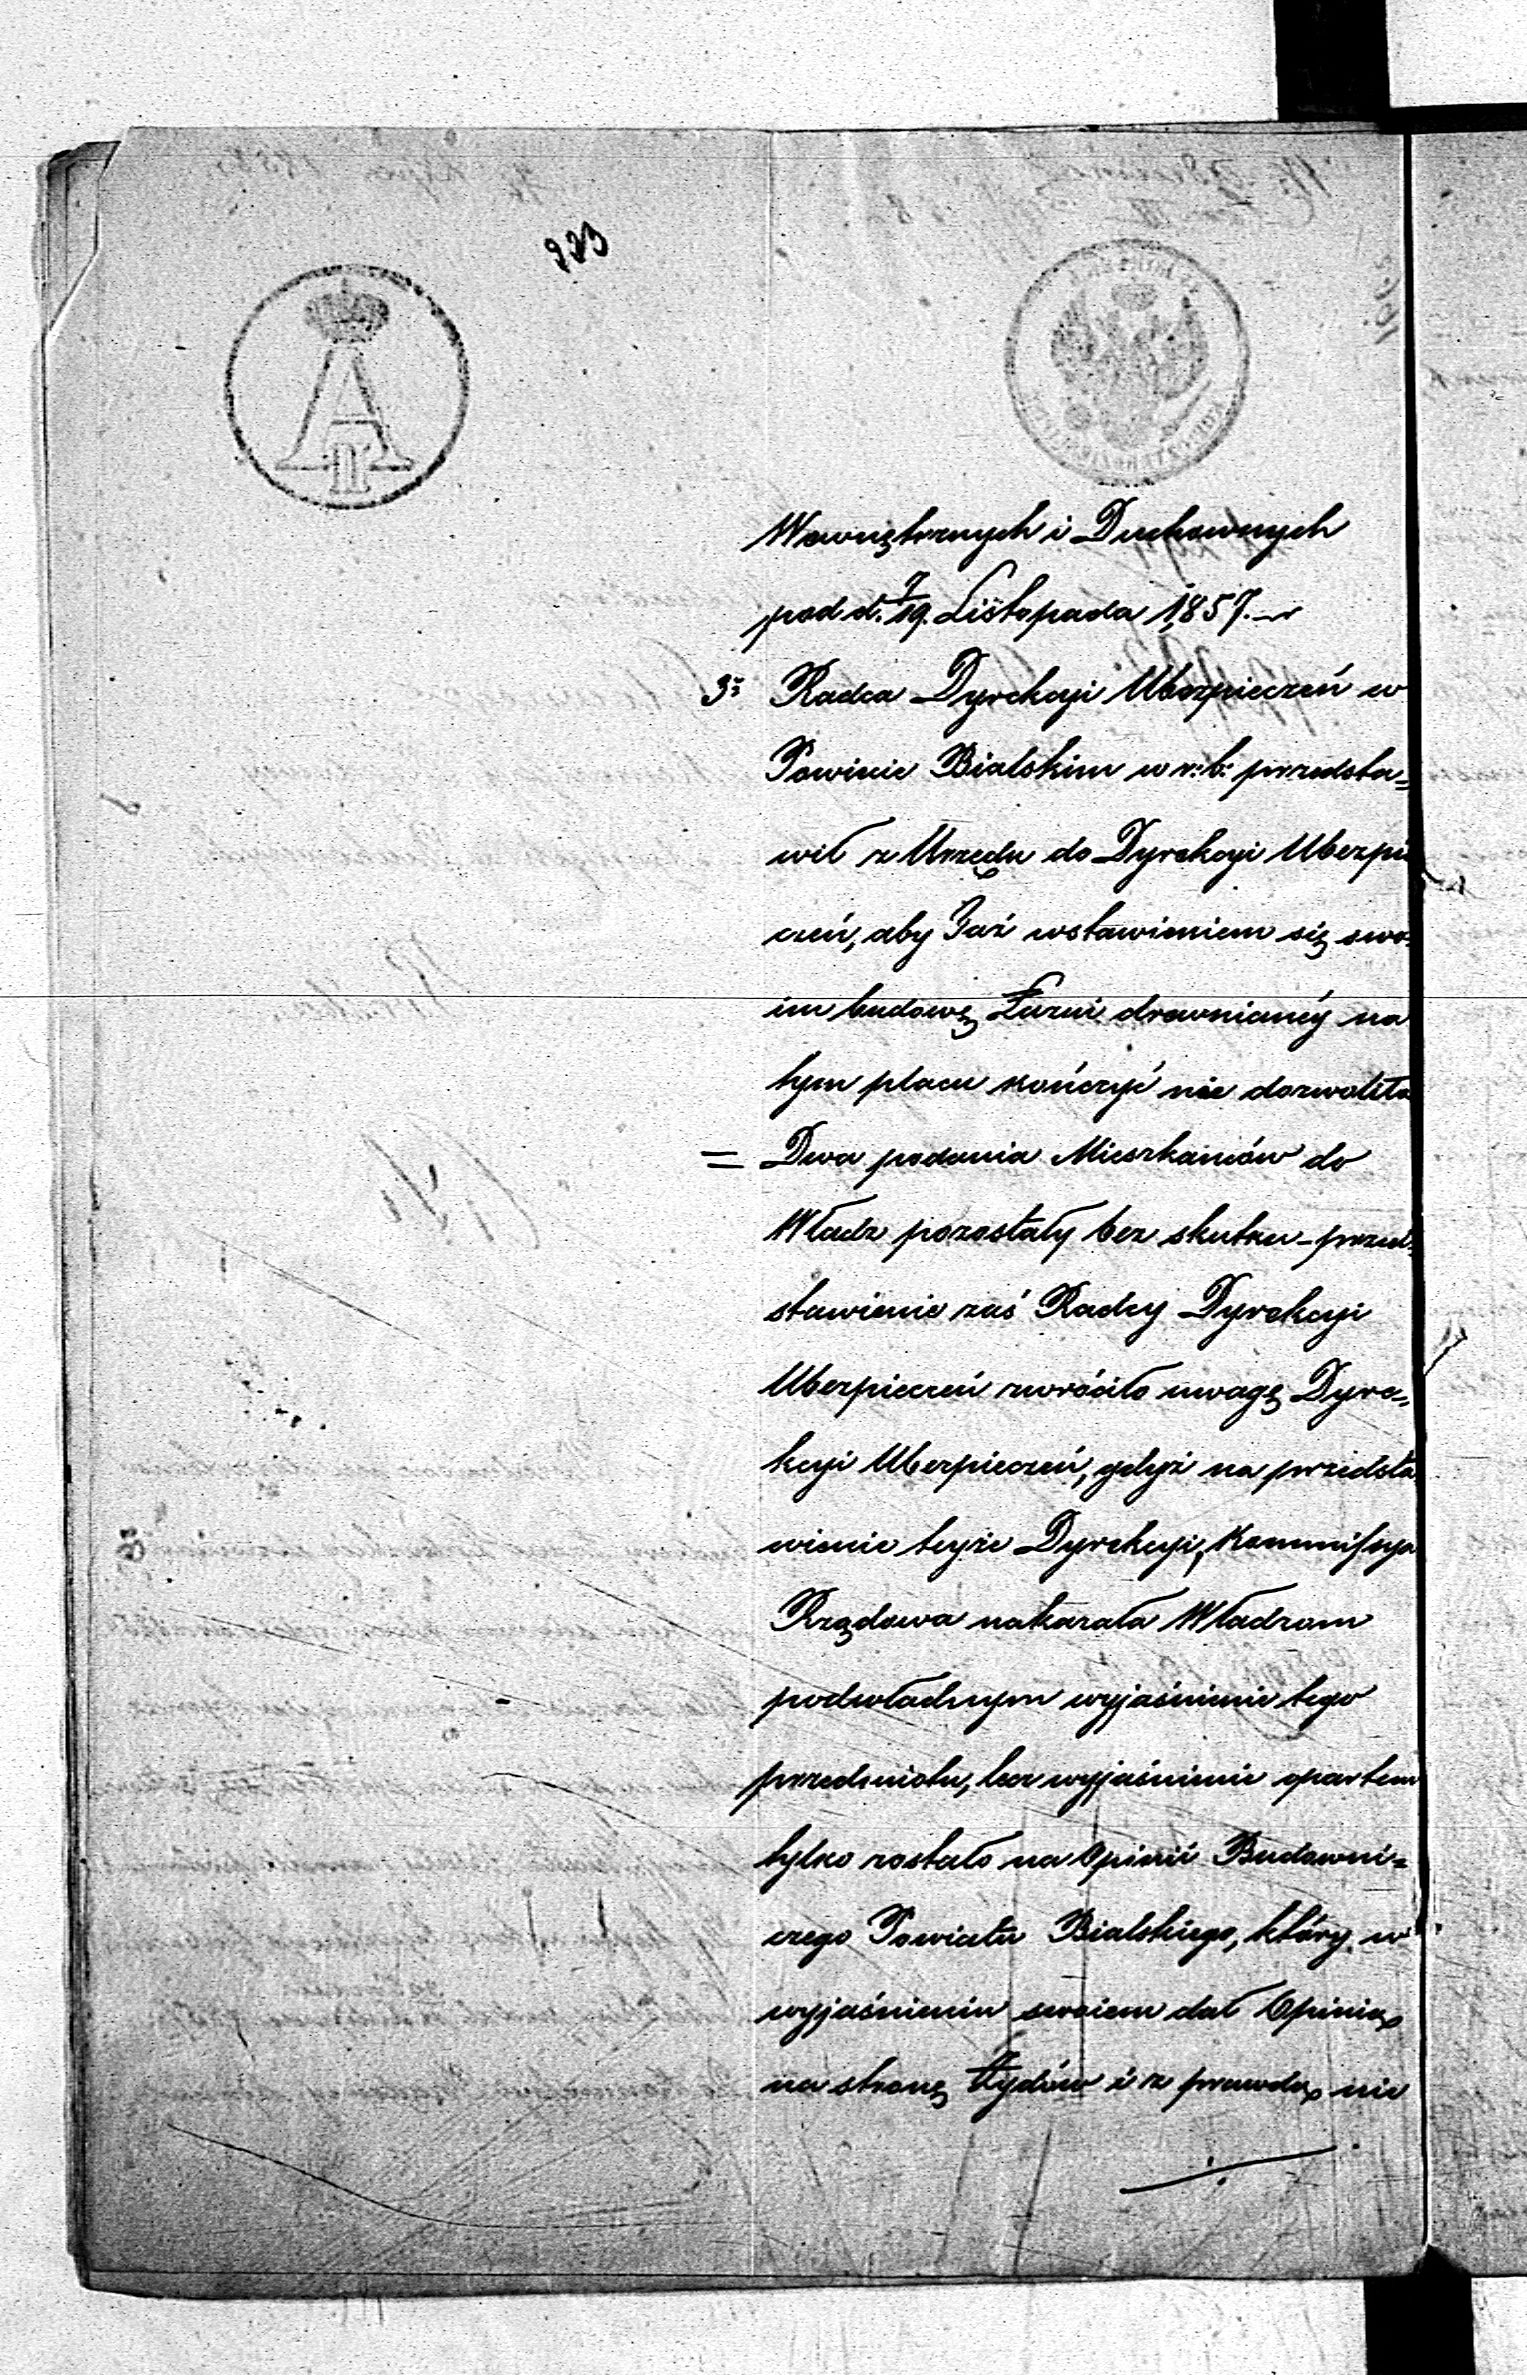 223
A
II
Wewnętrznych i Duchownych
pod d. 7/19. Listopada 1,857.
3. Radca Dyrekcyi Ubezpieczeń w
Powiecie Bialskim w r: b: przedsta=
wił z Urzędu do Dyrekcyi Ubezpie
czeń, aby Taż wstawieniem się swo=
im budowę Łaźni drewnianéy na
tym placu kończyć nie dozwoliła
= Dwa podania Mieszkańców do
Władz pozostały bez skutku – przed=
stawienie zaś Radcy Dyrekcyi
Ubezpieczeń zwróciło uwagę Dyre=
kcyi Ubezpieczeń, gdyż na przedsta=
wienie teyże Dyrekcyi, Kommissya
Rządowa nakazała Władzom
podwładnym wyjaśnienie tego
przedmiotu, lecz wyjaśnienie opartem
tylko zostało na Opinii Budowni=
czego Powiatu Bialskiego, który w
wyjaśnieniu swoiem dał Opinię
na stronę Żydów i z prawdą nie